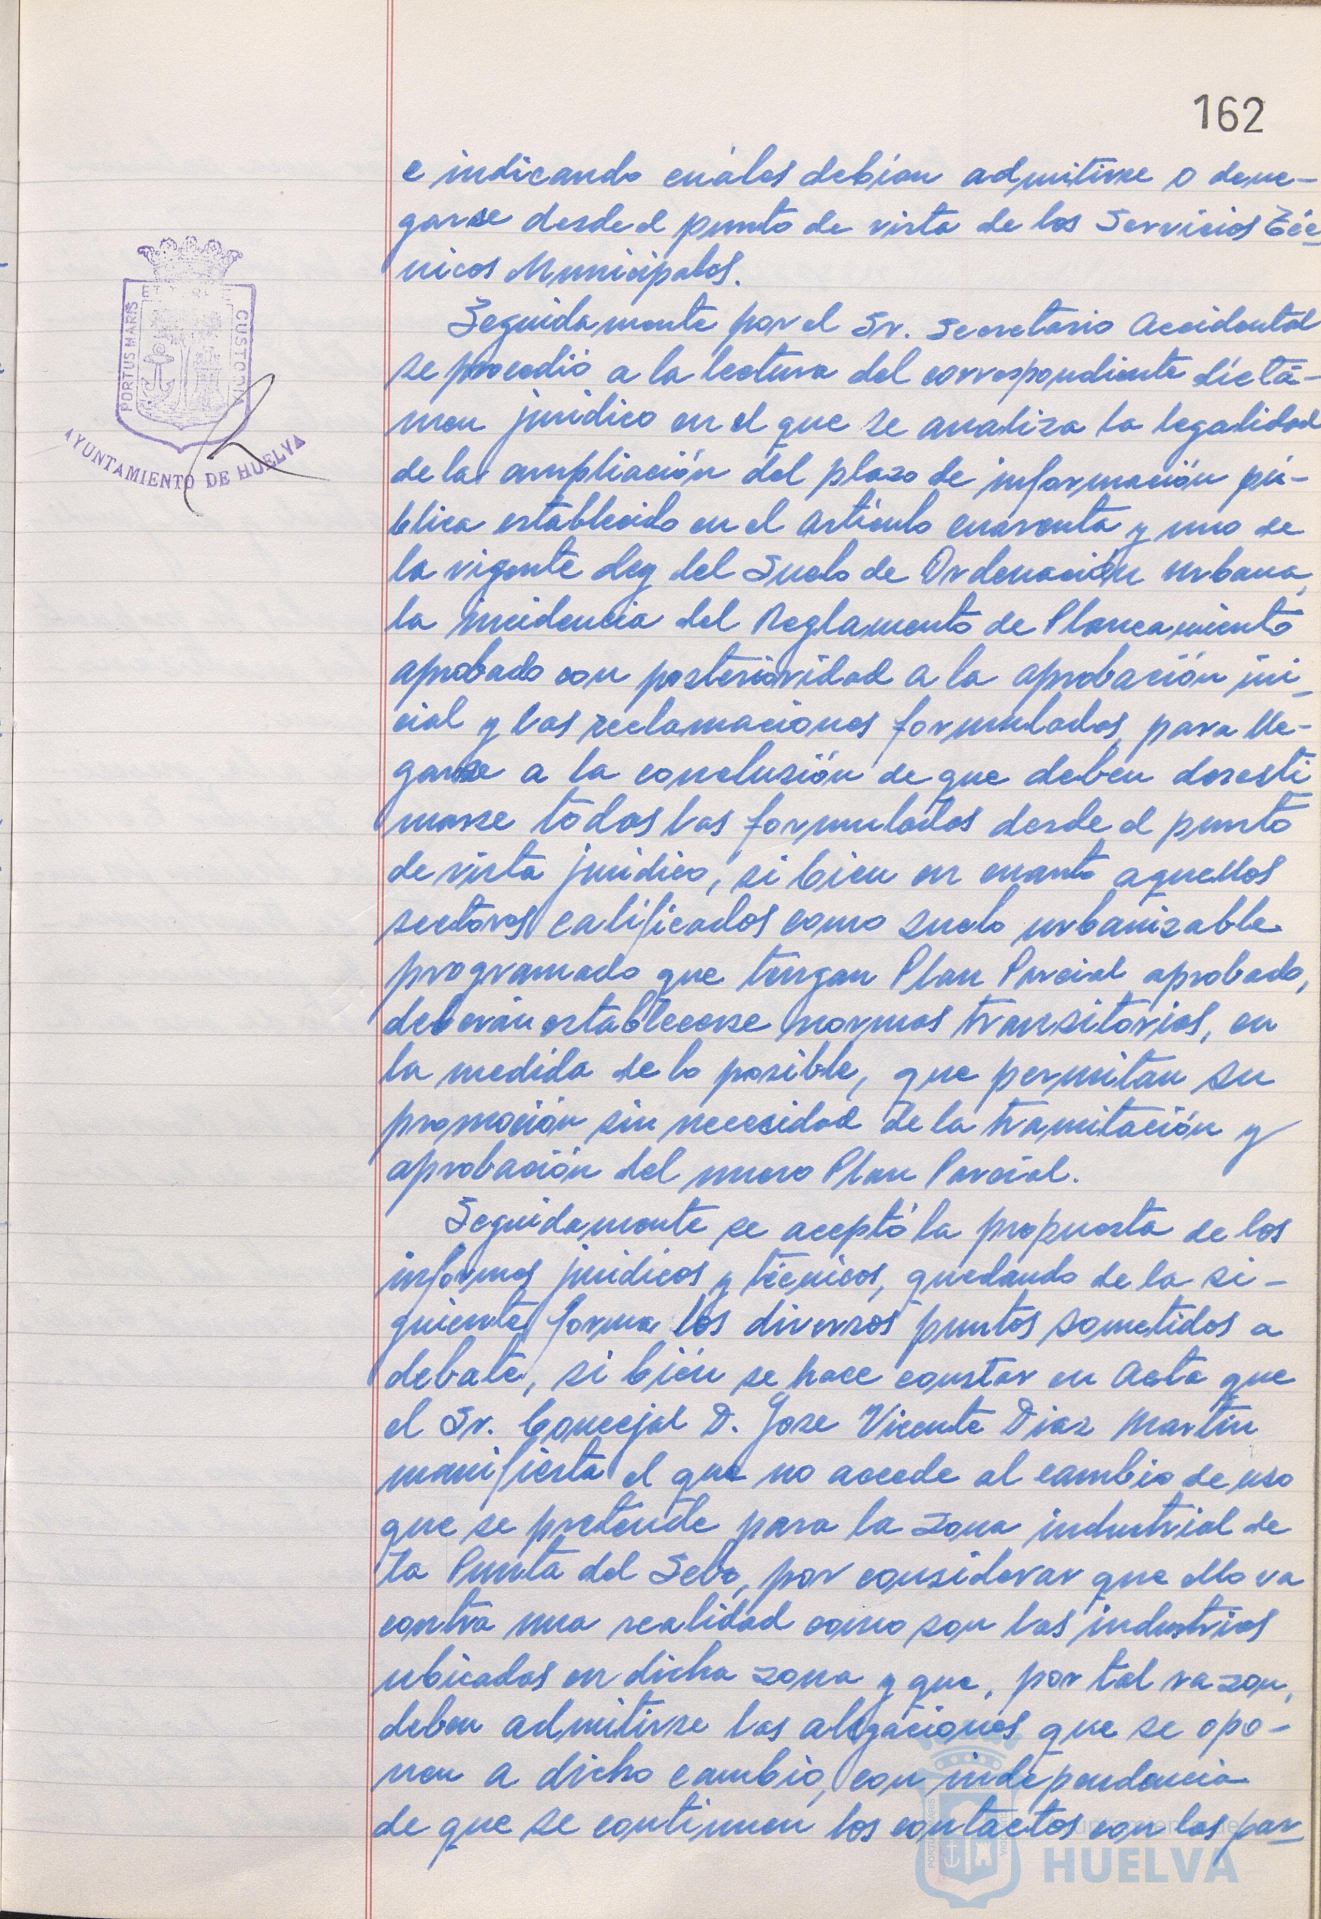 162
e indicando cuáles debían admitirse o dene-
garse desde el punto de vista de los Servicios Téc-
nicos Municipales.
Seguidamente por el Sr. Secretario Accidental
se procedió a la lectura del correspondiente dictá-
men jurídico en el que se analiza la legalidad
de la ampliación del plazo de información pú-
blica establecido en el artículo cuarenta y uno de
la vigente Ley del Suelo de Ordenación urbana,
la incidencia del Reglamento de Planeamiento
aprobado con posterioridad a la aprobación ini-
cial y las reclamaciones formuladas, para lle-
garse a la conclusión de que deben desesti
marse todas las formuladas desde el punto
de vista jurídico, si bien en cuanto aquellos
sectores calificados como suelo urbanizable
programado que tengan Plan Parcial aprobado,
deberán establecerse normas transitorias, en
la medida de lo posible, que permitan su
promoción sin necesidad de la tramitación y
aprobación del nuevo Plan Parcial.
Seguidamente se aceptó la propuesta de los
informes jurídicos y técnicos, quedando de la si-
guiente forma los diversos puntos sometidos a
debate, si bién se hace constar en Acta que
el Sr. Concejal D. Jose Vicente Diaz Martin
manifiesta el que no accede al cambio de uso
que se pretende para la zona industrial de
la Punta del Sebo, por considerar que ello va
contra una realidad como son las industrias
ubicadas en dicha zona y que, por tal razon,
deben admitirse las alegaciones que se opo-
nen a dicho cambio, con independencia
de que se continuen los contactos con las par
PORTUS MARIS
CUSTODIA
AYUNTAMIENTO DE HUELVA
HUELVA